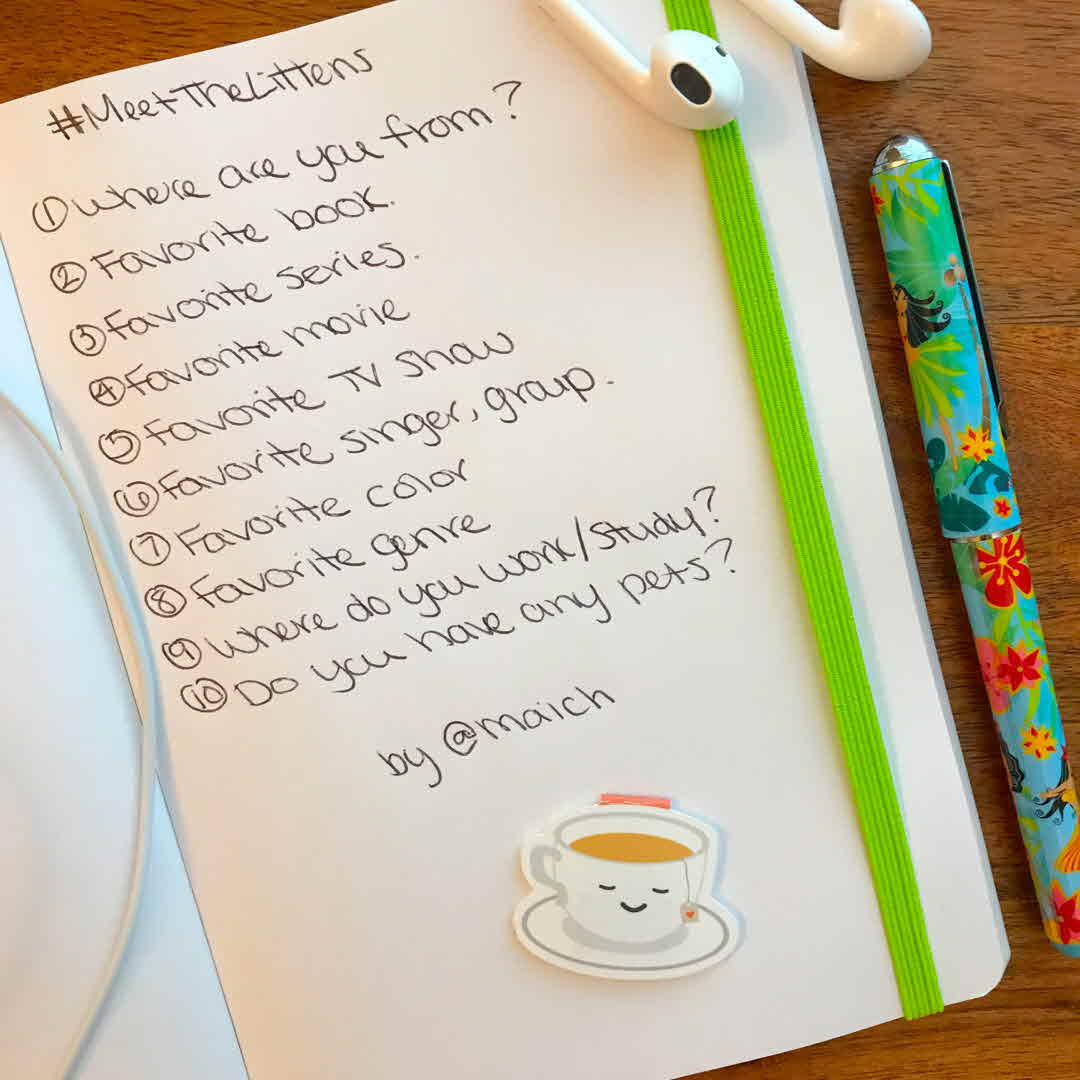 #MeetTheLittens
① Where are you from?
② Favorite book.
③ Favorite series.
④ Favorite movie
⑤ Favorite TV show
⑥ Favorite singer, group.
⑦ Favorite color
⑧ Favorite genre
⑨ Where do you work/study?
⑩ Do you have any pets?
by @maich